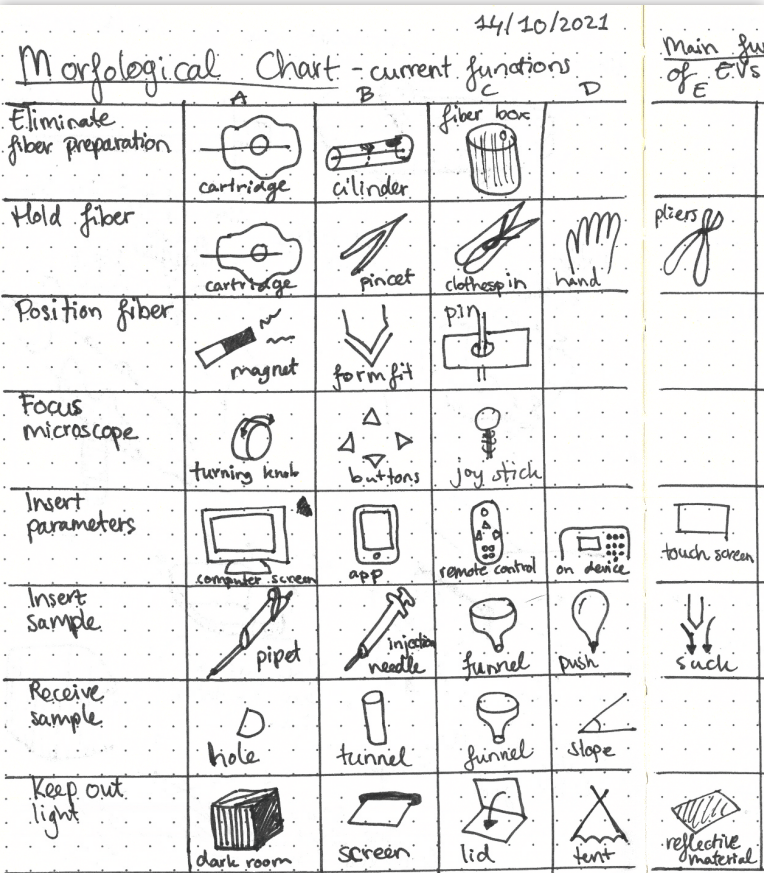 14/10/2021
Morfological Chart - current functions
Main fun
of EVs
A B C D E
Eliminate
fiber preparation
cartridge
cilinder
fiber box
Hold fiber
cartridge
pincet
clothespin
hand
pliers
Position fiber
magnet
form fit
pin
Focus
microscope
turning knob
buttons
joy stick
Insert
parameters
computer screen
app
remote control
on device
touch screen
Insert
sample
pipet
injection
needle
funnel
push
suck
Receive
sample
hole
tunnel
funnel
slope
Keep out
light
dark room
screen
lid
tent
reflective
material